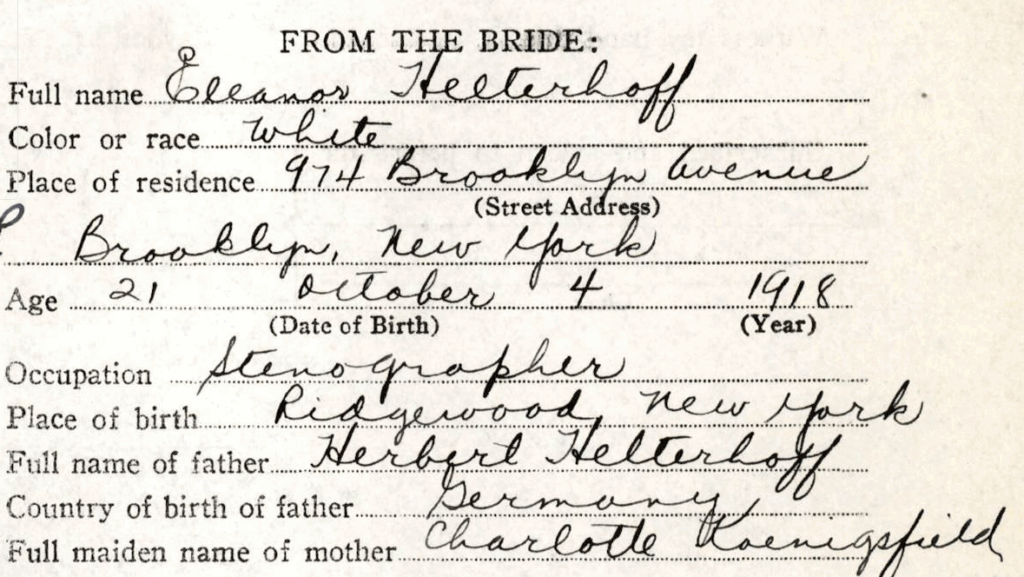 FROM THE BRIDE:
Full name Eleanor Helterhoff
Color or race White
Place of residence 974 Brooklyn Avenue
(Street Address)
Brooklyn, New York
Age 21 October 4 1918
(Date of Birth) (Year)
Occupation Stenographer
Place of birth Ridgewood, New York
Full name of father Herbert Helterhoff
Country of birth of father Germany
Full maiden name of mother Charlotte Koenigsfield